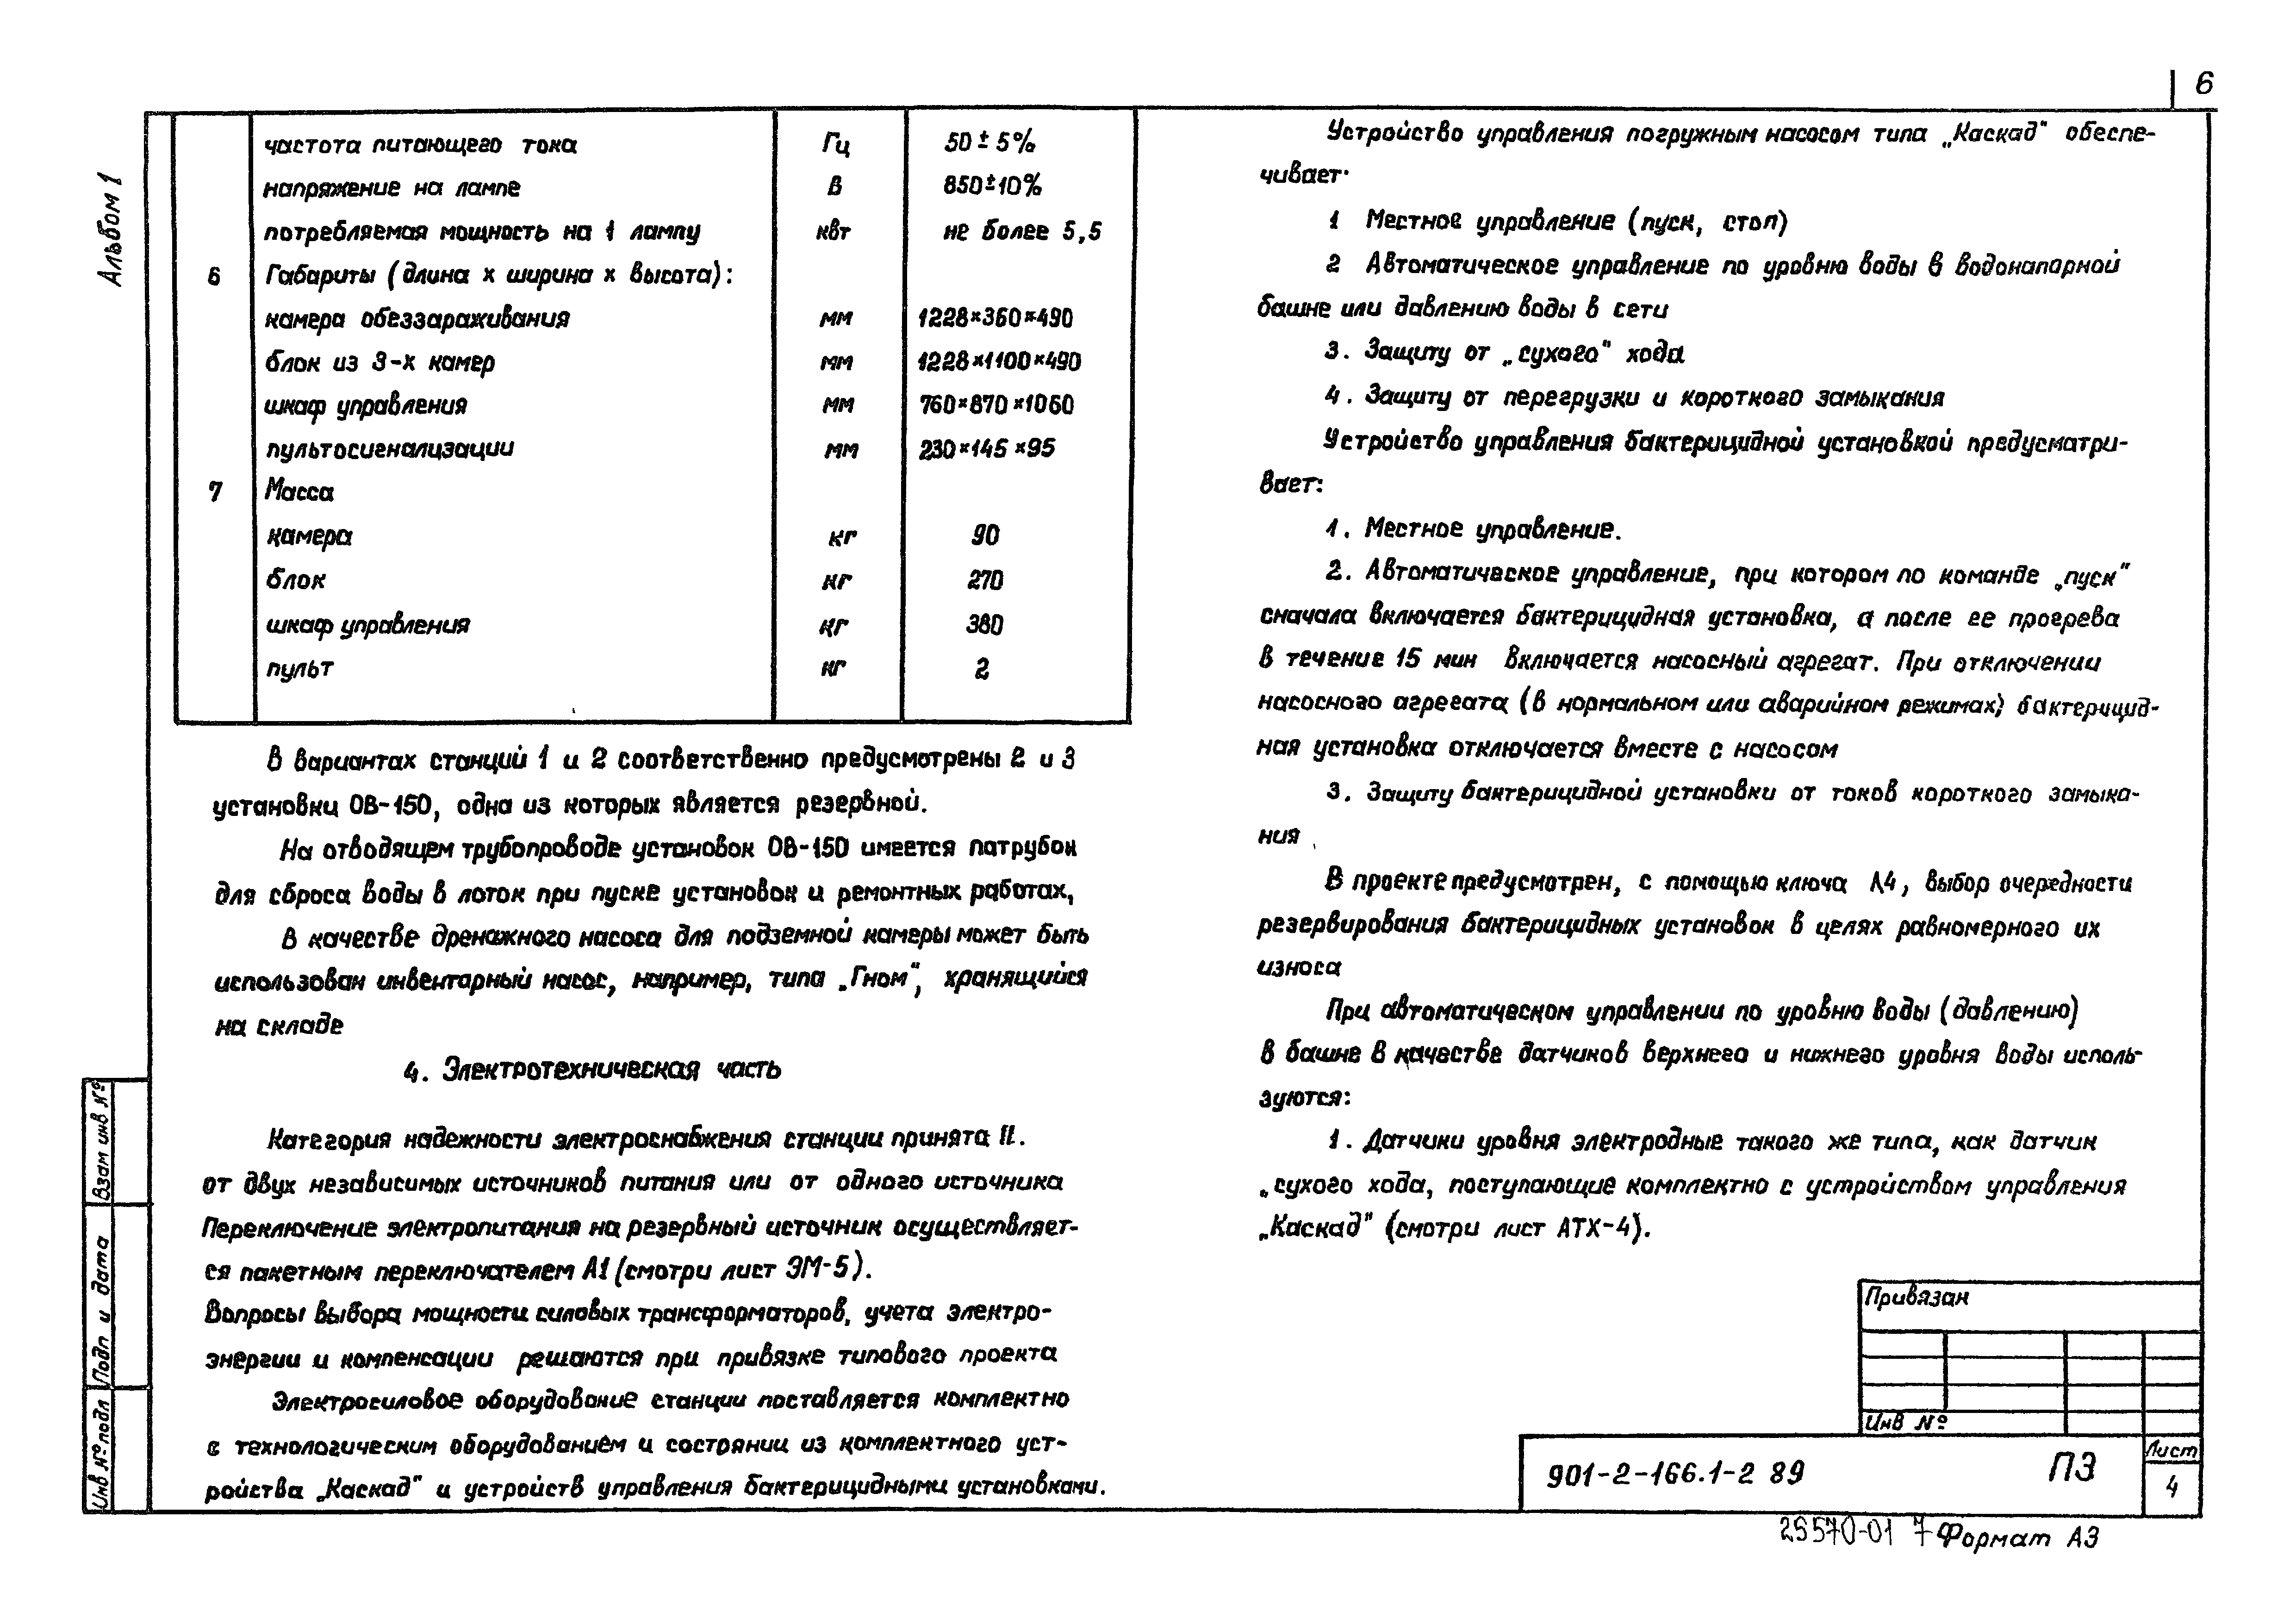 6
Альбом 1
частота питающего тока Гц 50 ± 5%
напряжение на лампе В 850±10%
потребляемая мощность на 1 лампу квт не более 5,5
6 Габариты (длина х ширина х высота):
камера обеззараживания мм 1228×360×490
блок из 3-х камер мм 1228×1100×490
шкаф управления мм 760×870×1060
пультосигнализации мм 230×145×95
7 Масса
камера кг 90
блок кг 270
шкаф управления кг 380
пульт кг 2
В вариантах станций 1 и 2 соответственно предусмотрены 2 и 3
установки ОВ-150, одна из которых является резервной.
На отводящем трубопроводе установок ОВ-150 имеется патрубок
для сброса воды в лоток при пуске установок и ремонтных работах,
В качестве дренажного насоса для подземной камеры может быть
использован инвентарный насос, например, типа „Гном“, хранящийся
на складе
4. Электротехническая часть
Категория надежности электроснабжения станции принята II.
от двух независимых источников питания или от одного источника
Переключение электропитания на резервный источник осуществляет-
ся пакетным переключателем А1 (смотри лист ЭМ-5).
Вопросы выбора мощности силовых трансформаторов, учета электро-
энергии и компенсации решаются при привязке типового проекта
Электросиловое оборудование станции поставляется комплектно
с технологическим оборудованием и состоянии из комплектного уст-
ройства „Каскад“ и устройств управления бактерицидными установками.
Устройство управления погружным насосом типа „Каскад“ обеспе-
чивает·
1 Местное управление (пуск, стоп)
2 Автоматическое управление по уровню воды в водонапарной
башне или давлению воды в сети
3. Защиту от „сухого“ хода
4. Защиту от перегрузки и короткого замыкания
Устройство управления бактерицидной установкой предусматри-
вает:
1. Местное управление.
2. Автоматическое управление, при котором по команде „пуск“
сначала включается бактерицидная установка, а после ее прогрева
в течение 15 мин включается насосный агрегат. При отключении
насосного агрегата (в нормальном или аварийном режимах) бактерицид-
ная установка отключается вместе с насосом
3. Защиту бактерицидной установки от токов короткого замыка-
ния
В проекте предусмотрен, с помощью ключа А4, выбор очередности
резервирования бактерицидных установок в целях равномерного их
износа
При автоматическом управлении по уровню воды (давлению)
в башне в качестве датчиков верхнего и нижнего уровня воды исполь-
зуются:
1. Датчики уровня электродные такого же типа, как датчик
„сухого хода, поступающие комплектно с устройством управления
„Каскад“ (смотри лист АТХ-4).
Взам инв №
Подп и дата
Инв № подл
Привязан
Инв №
901-2-166.1-2 89 ПЗ
Лист
4
25570-01 7 Формат А3